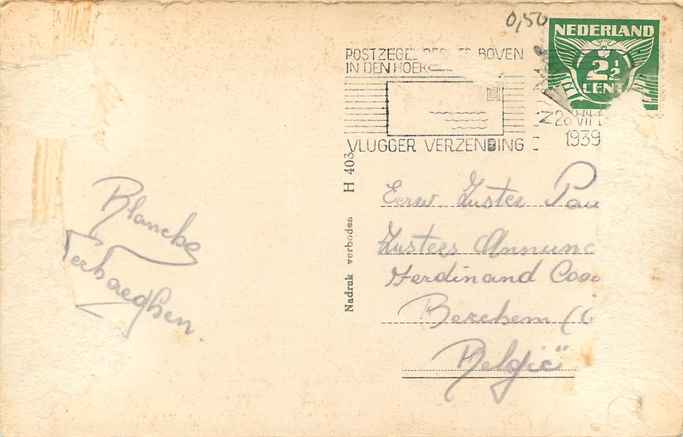 0,50
NEDERLAND
2½
CENT
POSTZEGEL BOVEN
IN DEN HOEK
VLUGGER VERZENDING
1939
H 403
Nadruk verboden
Blanche
Verhaeghen.
Eerw Zuster Pau
Zusters Annunc
Ferdinand Coo
Berchem (
België